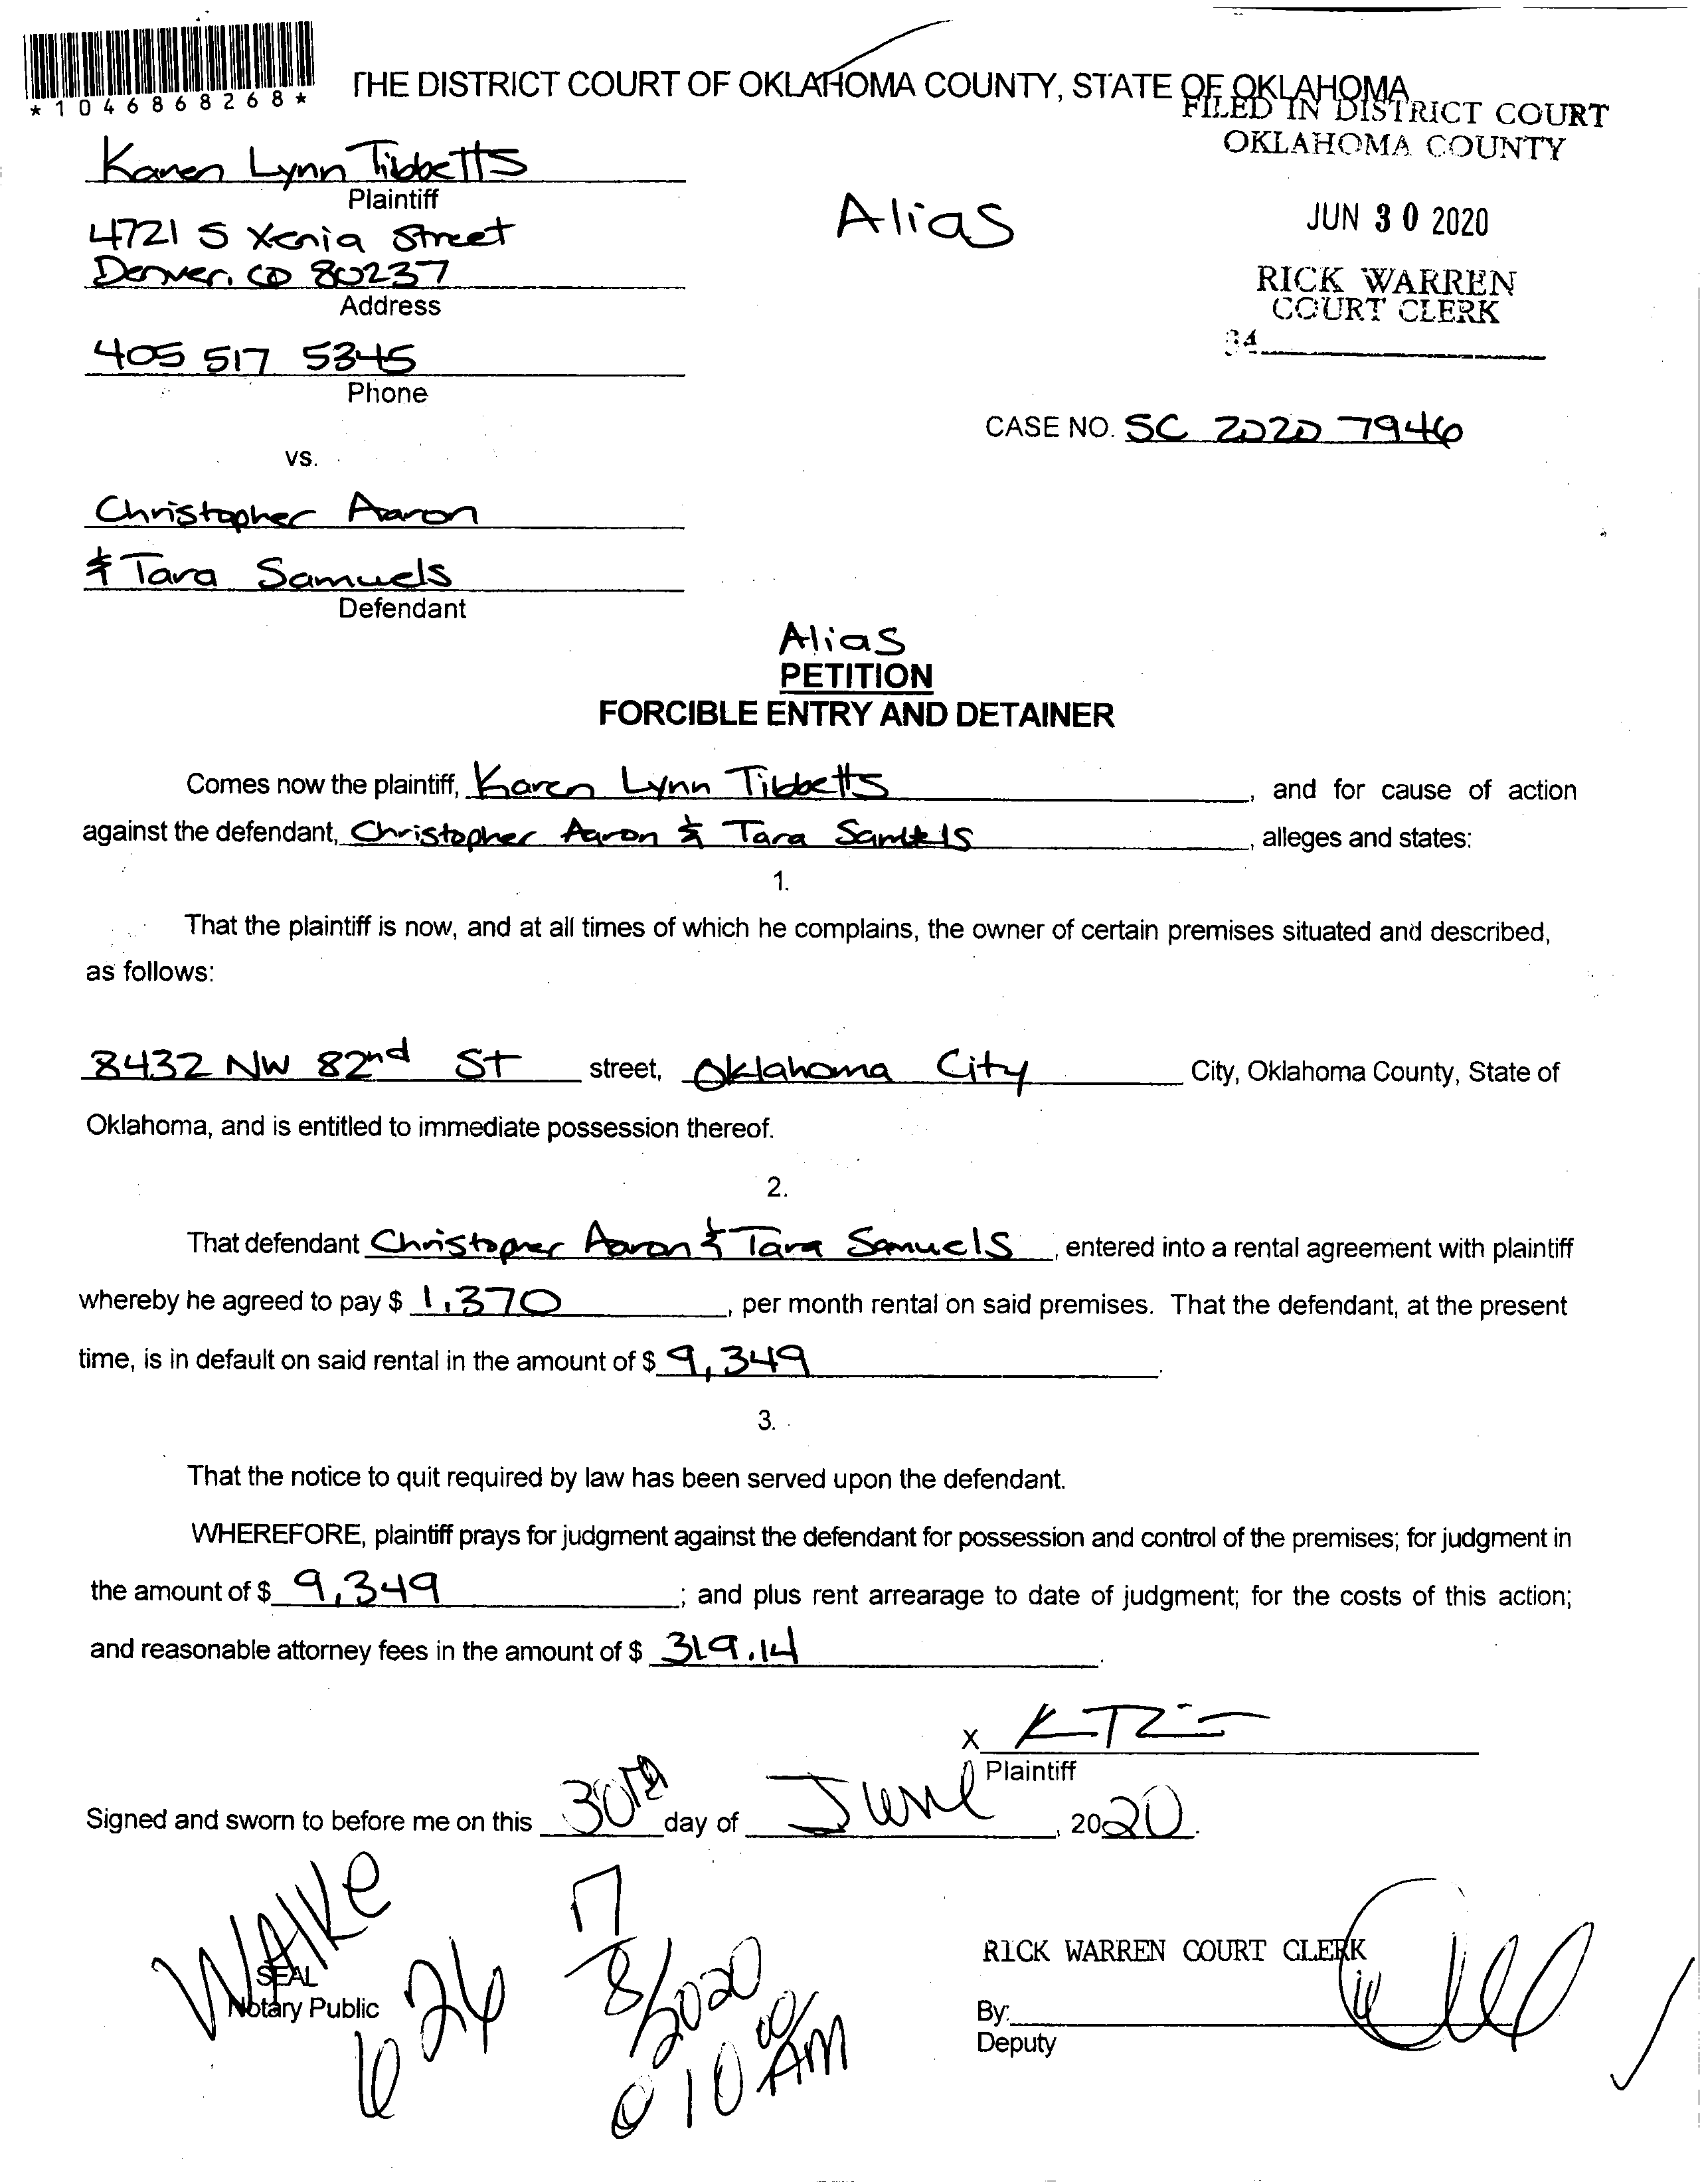 *1046868268*
THE DISTRICT COURT OF OKLAHOMA COUNTY, STATE OF OKLAHOMA
FILED IN DISTRICT COURT
OKLAHOMA COUNTY
JUN 30 2020
RICK WARREN
COURT CLERK
34
Karen Lynn Tibbetts
Plaintiff
Alias
4721 S Xenia Street
Denver, CO 80237
Address
405 517 5345
Phone
CASE NO. SC 2020 7946
vs.
Christopher Aaron
& Tara Samuels
Defendant
Alias
PETITION
FORCIBLE ENTRY AND DETAINER
Comes now the plaintiff, Karen Lynn Tibbetts, and for cause of action
against the defendant, Christopher Aaron & Tara Samuels, alleges and states:
1.
That the plaintiff is now, and at all times of which he complains, the owner of certain premises situated and described,
as follows:
8432 NW 82nd St street, Oklahoma City City, Oklahoma County, State of
Oklahoma, and is entitled to immediate possession thereof.
2.
That defendant Christopner Aaron & Tara Samuels, entered into a rental agreement with plaintiff
whereby he agreed to pay $ 1,370, per month rental on said premises. That the defendant, at the present
time, is in default on said rental in the amount of $ 9,349.
3.
That the notice to quit required by law has been served upon the defendant.
WHEREFORE, plaintiff prays for judgment against the defendant for possession and control of the premises; for judgment in
the amount of $ 9,349; and plus rent arrearage to date of judgment; for the costs of this action;
and reasonable attorney fees in the amount of $ 319.14.
X
Plaintiff
Signed and sworn to before me on this 30th day of June, 2020.
WAIKe
SEAL
Notary Public
626
7/8/2020
@ 10 00 AM
RICK WARREN COURT CLERK
By:
Deputy